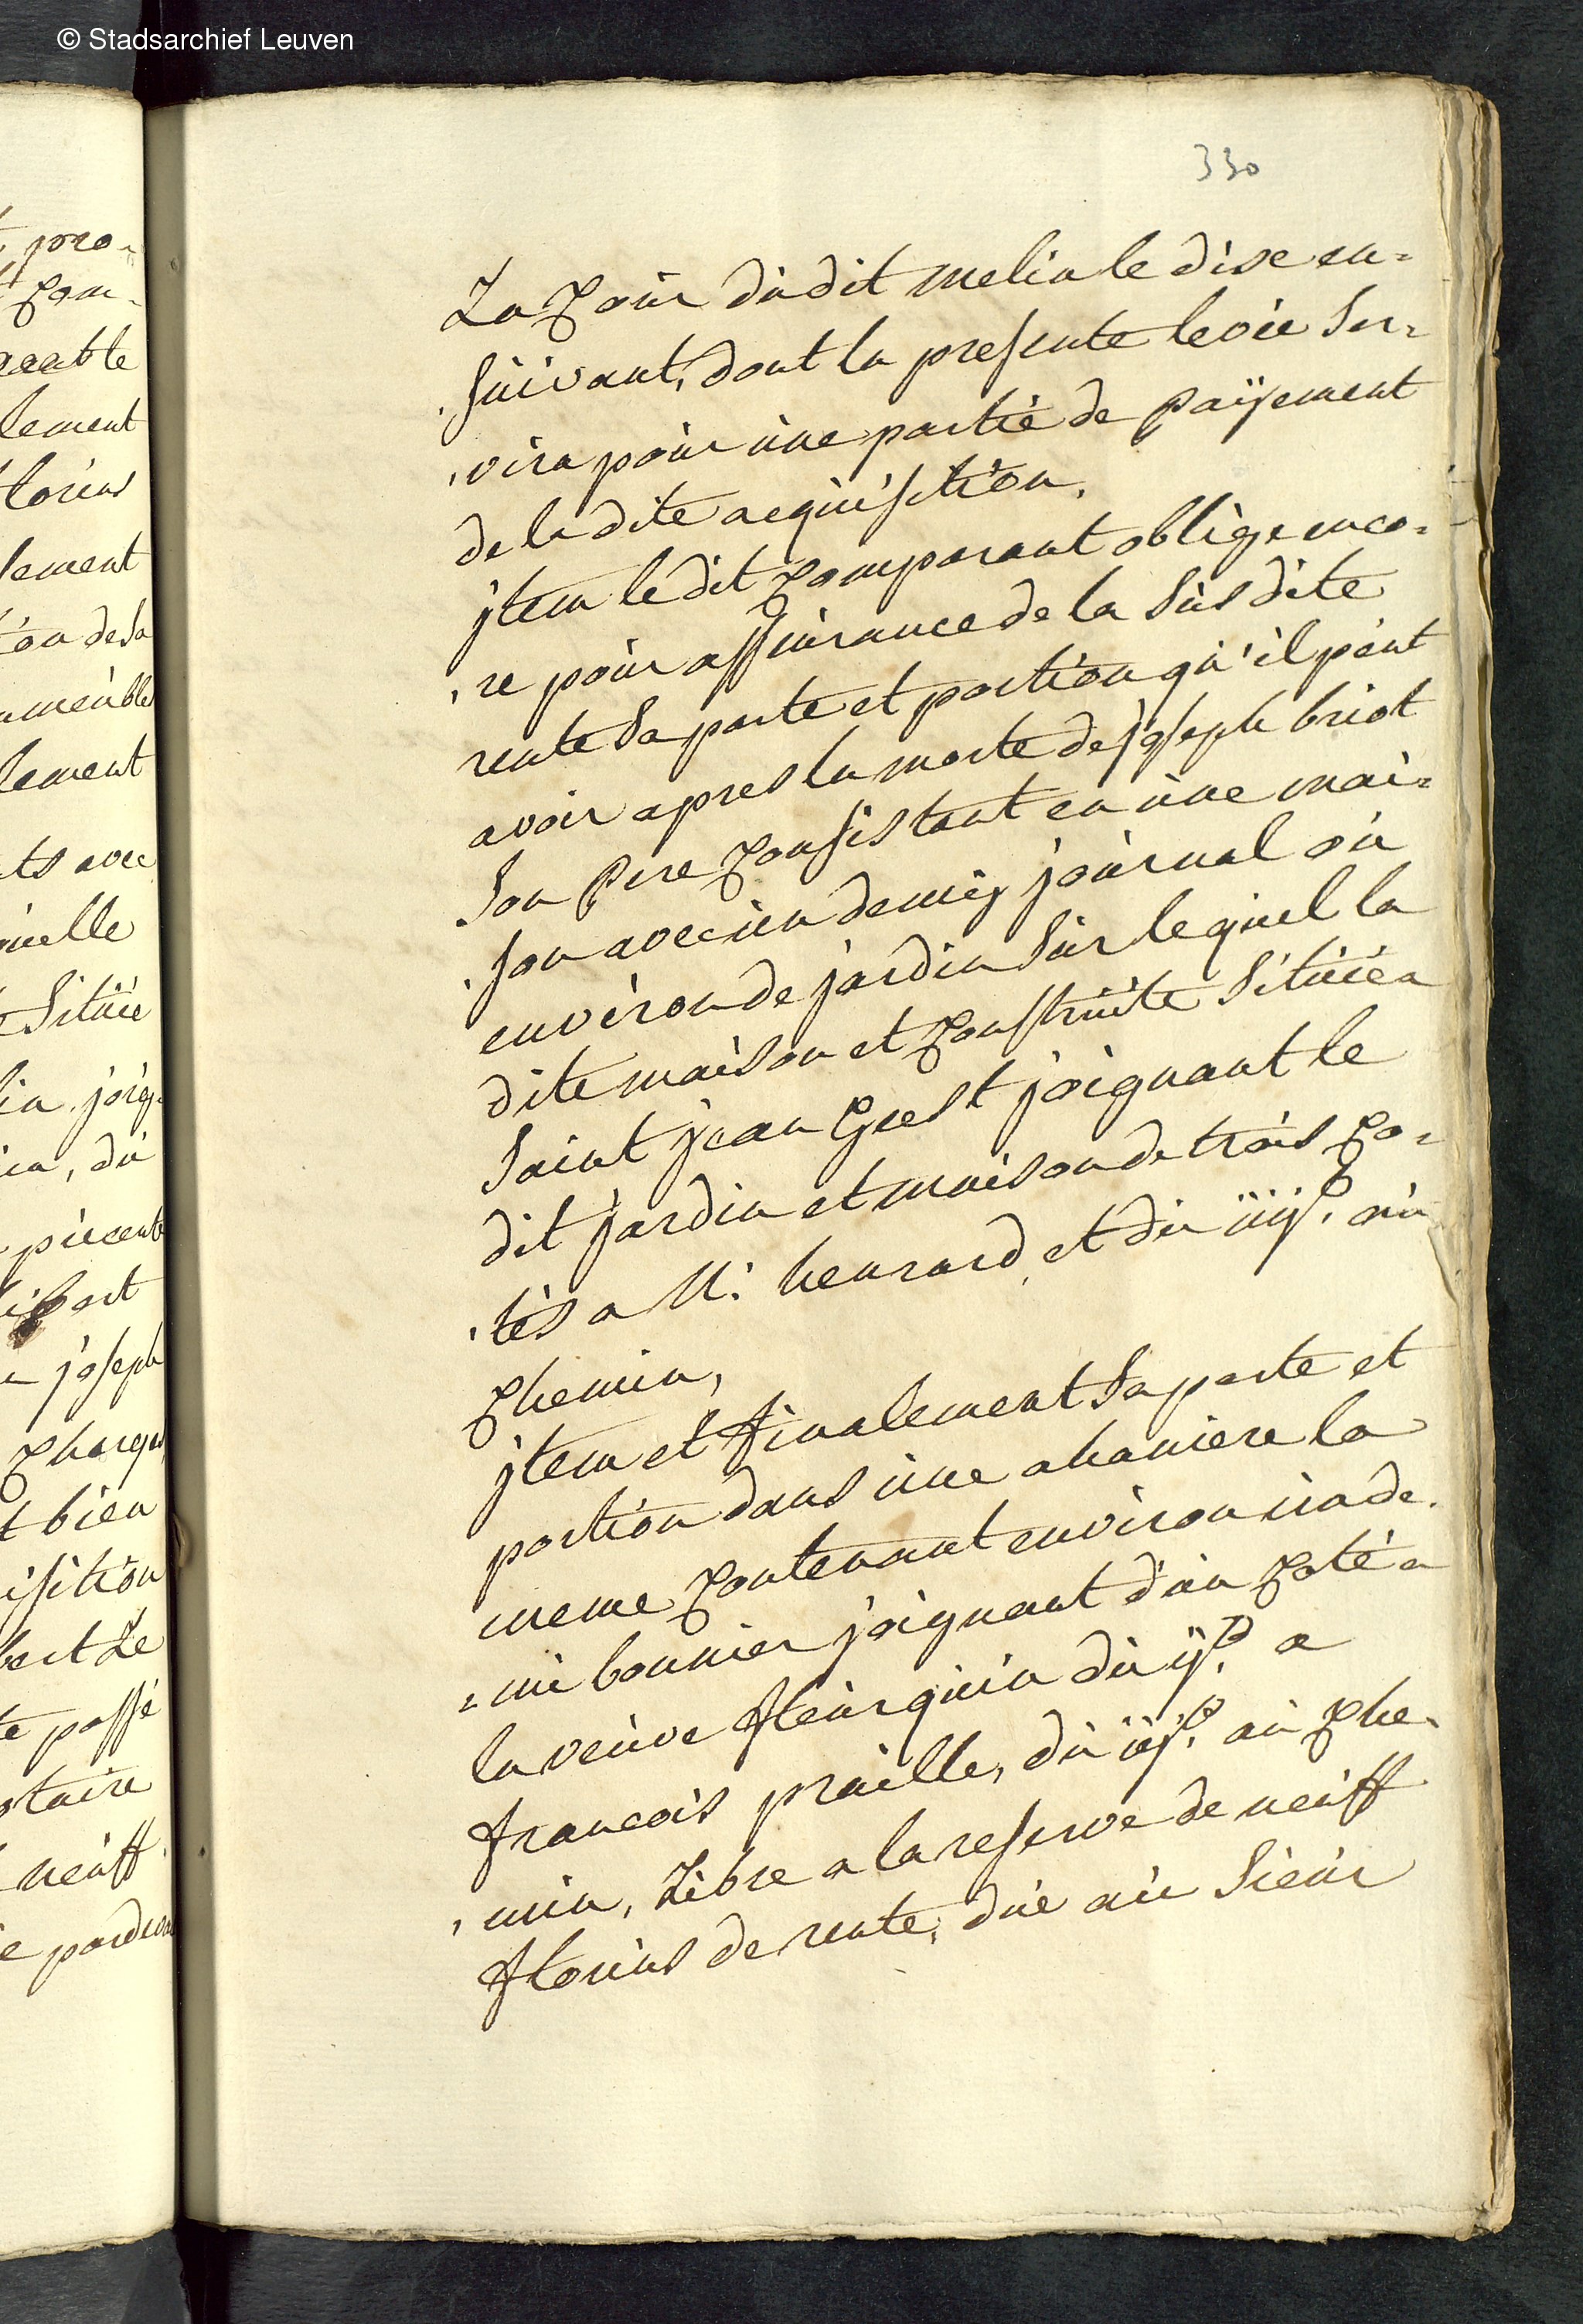 © Stadsarchief Leuven
330
La Cour dudit melin le dixe en=
suivant, dont la presente levée ser=
vira pour une partie de païjement
de la dite acquisition.
jtem le dit Comparant oblige enco=
re pour assurance de la susdite
rente sa parte et portion qu'il peut
avoir apres la morte de joseph briot
son Pere Consistant en une mai=
son avec un demij journal ou
environ de jardin sur lequel la
dite maison et Construite située a
saint jean Geest joignant le
dit jardin et maison de trois Co=
tés a Mr. henrard et du iiije. au
Chemin,
jtem et finalement sa parte et
portion dans une ahaniere la
meme Contenant environ un de=
mi bonnier joignant d'un Coté a
la veuve fleurquin du ije. a
francois praille, du iije. au Che=
min, Libre a la reserve de neuff
florins de rente, due au sieur
pro=
Com=
lement
lement
lement
ts avec
située
joseph
Charges
t bien
passé
neuff